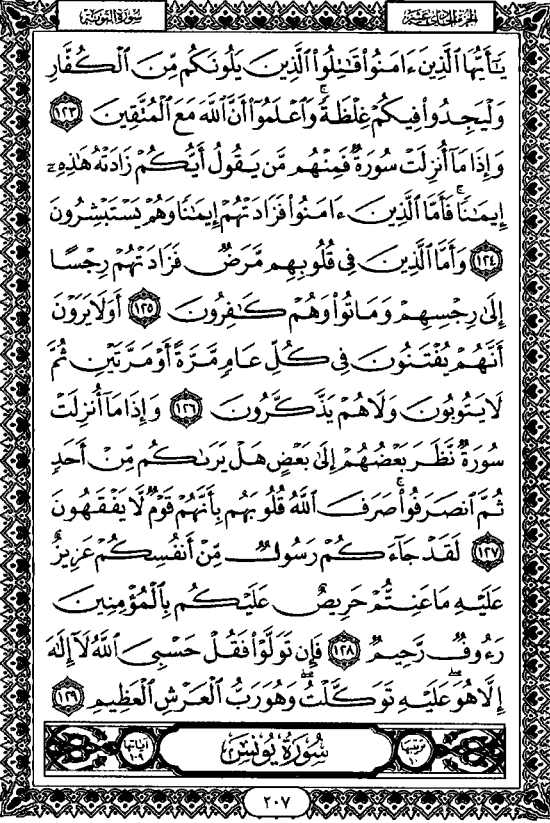 الجزء الحادي عشر
سورة التوبة
يَٰٓأَيُّهَا ٱلَّذِينَ ءَامَنُوا۟ قَٰتِلُوا۟ ٱلَّذِينَ يَلُونَكُم مِّنَ ٱلْكُفَّارِ
وَلْيَجِدُوا۟ فِيكُمْ غِلْظَةً ۚ وَٱعْلَمُوٓا۟ أَنَّ ٱللَّهَ مَعَ ٱلْمُتَّقِينَ ١٢٣
وَإِذَا مَآ أُنزِلَتْ سُورَةٌ فَمِنْهُم مَّن يَقُولُ أَيُّكُمْ زَادَتْهُ هَٰذِهِۦٓ
إِيمَٰنًا ۚ فَأَمَّا ٱلَّذِينَ ءَامَنُوا۟ فَزَادَتْهُمْ إِيمَٰنًا وَهُمْ يَسْتَبْشِرُونَ
١٢٤ وَأَمَّا ٱلَّذِينَ فِى قُلُوبِهِم مَّرَضٌ فَزَادَتْهُمْ رِجْسًا
إِلَىٰ رِجْسِهِمْ وَمَاتُوا۟ وَهُمْ كَٰفِرُونَ ١٢٥ أَوَلَا يَرَوْنَ
أَنَّهُمْ يُفْتَنُونَ فِى كُلِّ عَامٍ مَّرَّةً أَوْ مَرَّتَيْنِ ثُمَّ
لَا يَتُوبُونَ وَلَا هُمْ يَذَّكَّرُونَ ١٢٦ وَإِذَا مَآ أُنزِلَتْ
سُورَةٌ نَّظَرَ بَعْضُهُمْ إِلَىٰ بَعْضٍ هَلْ يَرَىٰكُم مِّنْ أَحَدٍ
ثُمَّ ٱنصَرَفُوا۟ ۚ صَرَفَ ٱللَّهُ قُلُوبَهُم بِأَنَّهُمْ قَوْمٌ لَّا يَفْقَهُونَ
١٢٧ لَقَدْ جَآءَكُمْ رَسُولٌ مِّنْ أَنفُسِكُمْ عَزِيزٌ
عَلَيْهِ مَا عَنِتُّمْ حَرِيصٌ عَلَيْكُم بِٱلْمُؤْمِنِينَ
رَءُوفٌ رَّحِيمٌ ١٢٨ فَإِن تَوَلَّوْا۟ فَقُلْ حَسْبِىَ ٱللَّهُ لَآ إِلَٰهَ
إِلَّا هُوَ ۖ عَلَيْهِ تَوَكَّلْتُ ۖ وَهُوَ رَبُّ ٱلْعَرْشِ ٱلْعَظِيمِ ١٢٩
ترتيبها ١٠
سُورَةُ يُونُسَ
آياتها ١٠٩
٢٠٧